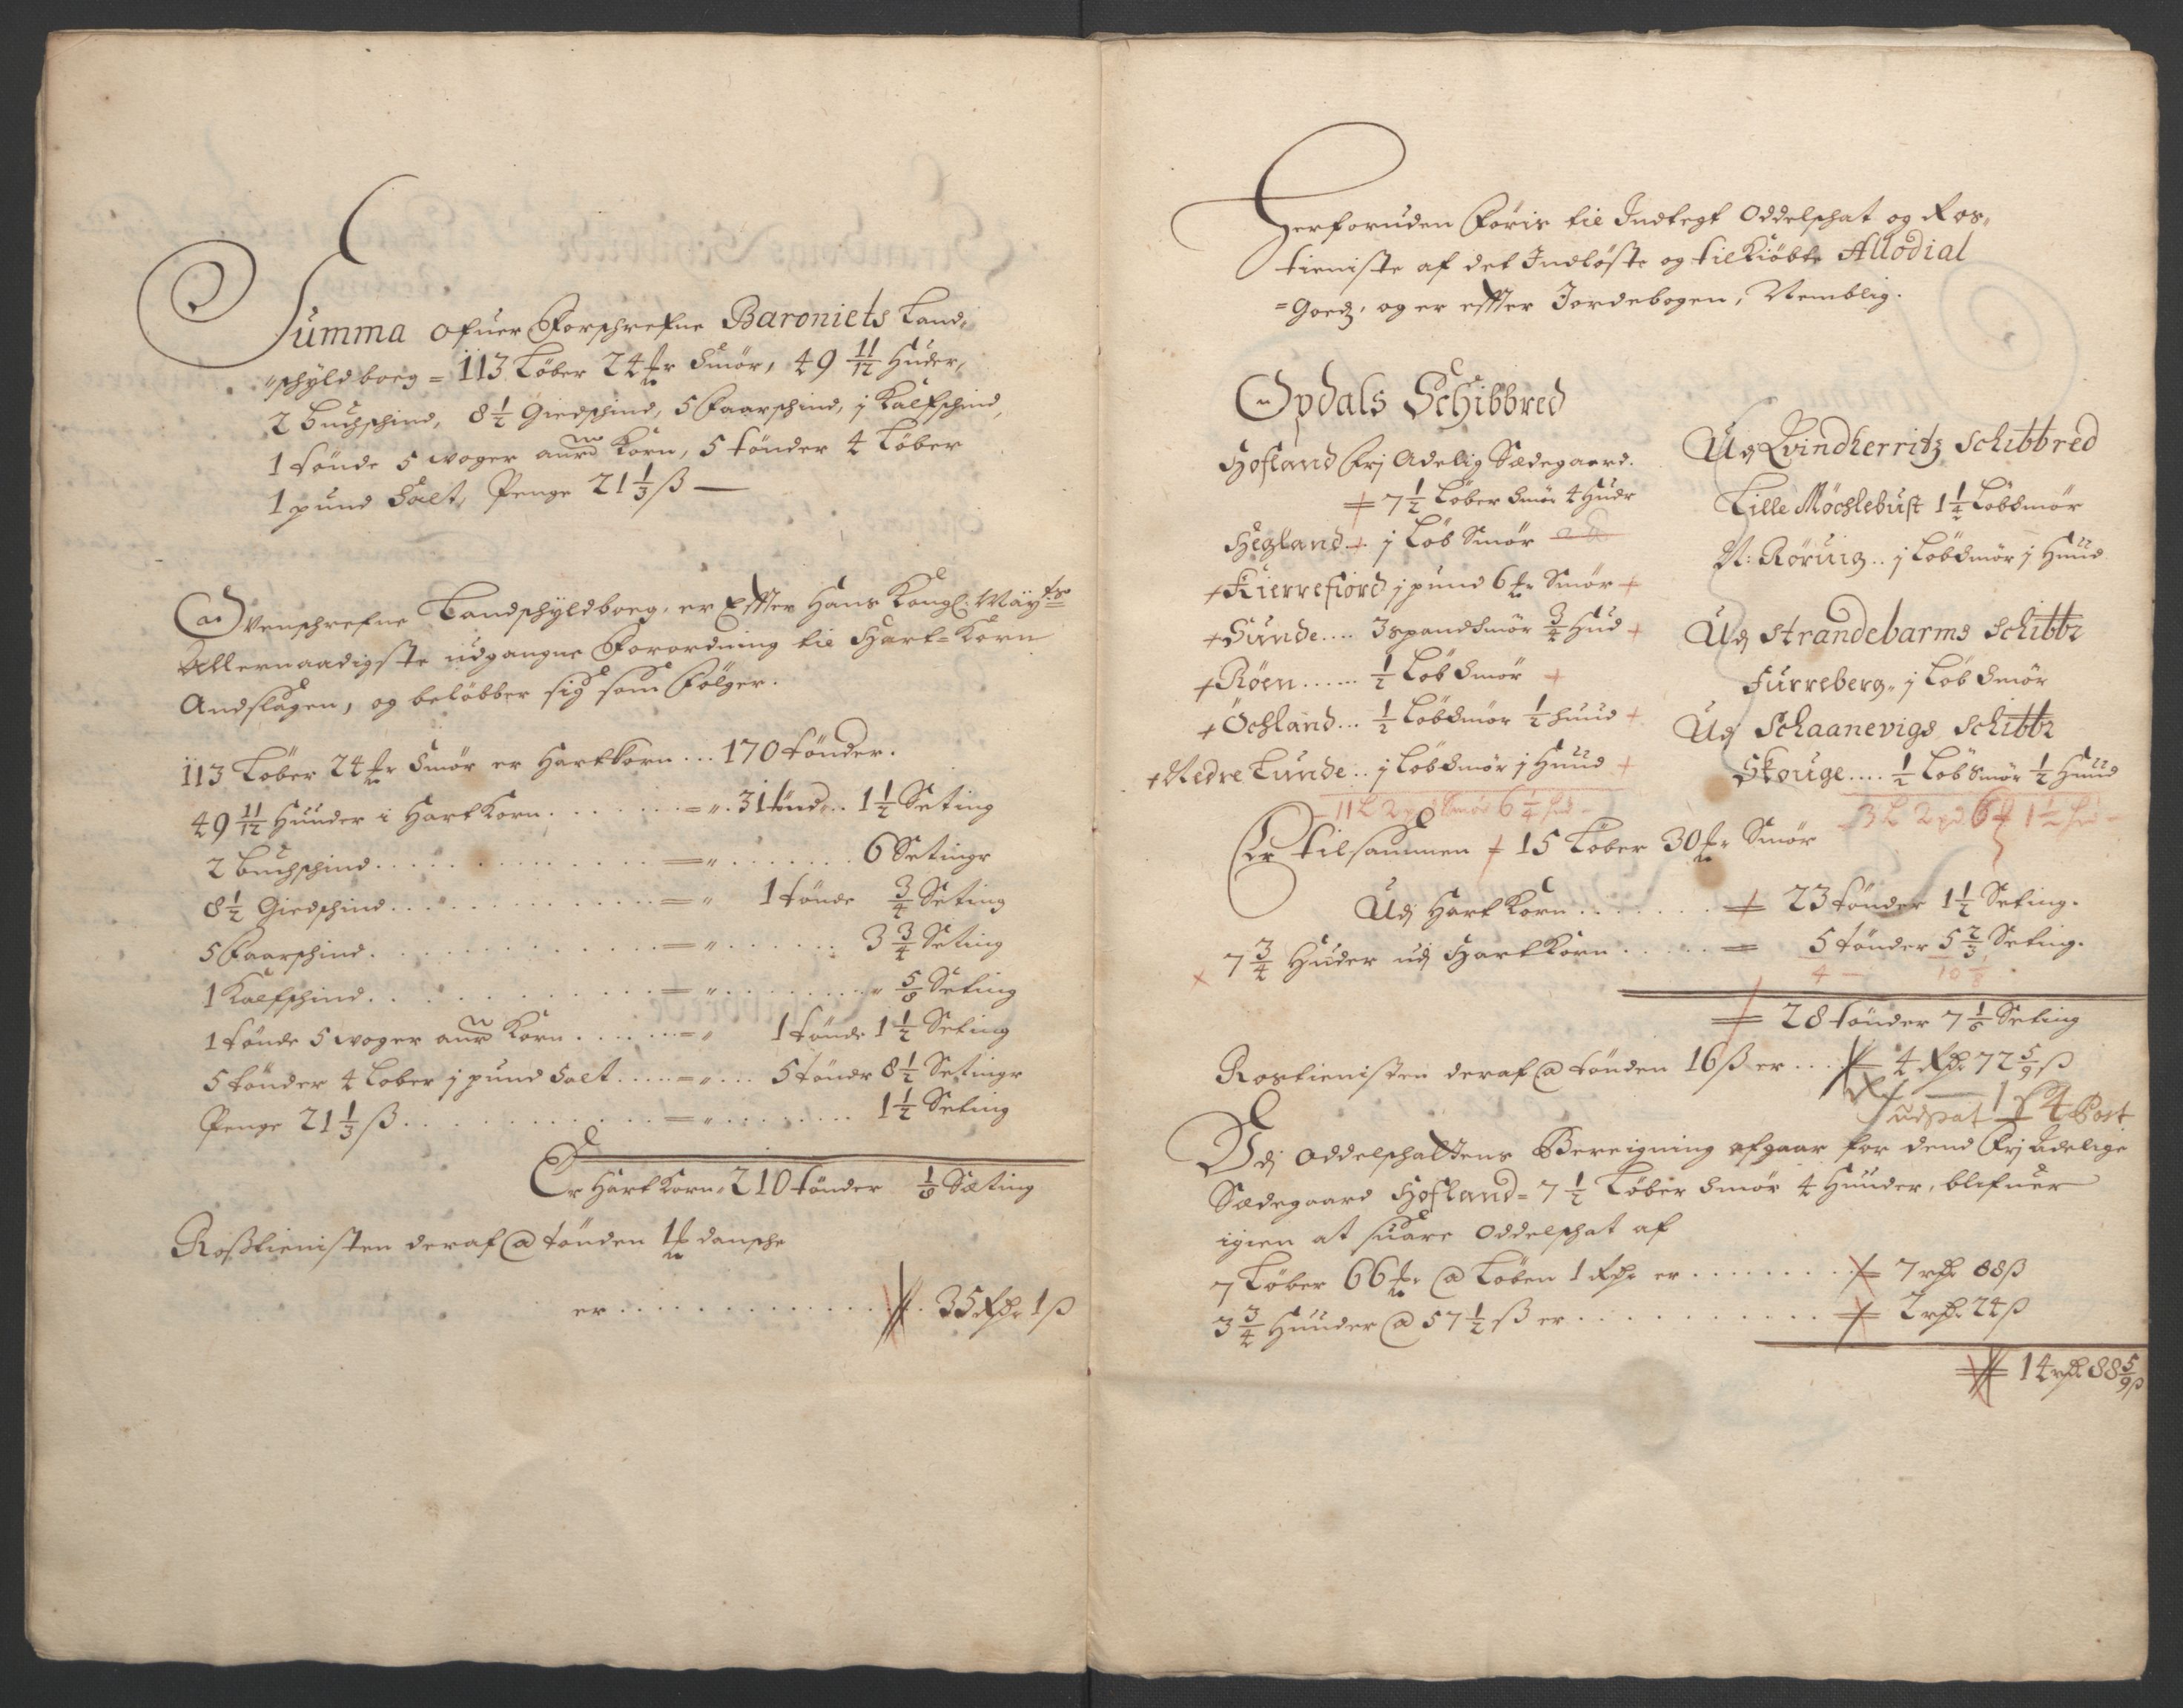 Summa ofuer Forschrefne Baroniets Land¸
schyld boeg = 113 Løber 24 ℔r Smør, 49 11/12 Huder,
2 Buchschind, 8 1/2 Giedschind, 5 Faarschind, j Kalfschind,
1 tønde 5 woger aurd Korn, 5 tønder 4 Løber
1 pund Salt, Penge 21 1/3 ß —
Ovenschrefne Landschyldboeg, er Effter Hans Kongl: Mayts
Allernaadigste udgangne Forordning til Hart=Korn
Andslagen, og beløbber sig som Følger.
113 Løber 24 ℔r Smør er Hartkorn ... 170 tønder.
49 11/12 Huuder i Hart Korn. . . . . . =". 31 tønd .. 1 1/2 Seting
2 Buchschind. . . . . . . . . . . =" . . . . . . . 6 Setingr
8 1/2 Giedschind. . . . . . . . . . =" 1 tønde 3/4 Seting
5 Faarschind. . . . . . . . . . =" . . . . . . 3 3/4 Seting
1 Kalfschind. . . . . . . . . . =" . . . . . . " 5/8 Seting
1 tønde 5 woger aurd Korn . . . . . =" 1 tønde 1 1/2 Seting
5 tønder 4 Løber j pund Salt . . . . =" ... 5 tøndr 8 1/2 Setingr
Penge 21 1/3 ß. . . . . . . . . . =" . . . . . . . 1 1/2 Seting
Er Hart Korn " 210 tønder 1/8 Sæting
Roßtienisten deraf @ tønden 1 ℔ dansche
er . . . . . . . . . . . . . 35 Rdr 1 ß
Herforuden Føris til Indtegt Oddelschat og Ros¸
tieniste af det Indløste og tilkiøbte Allodial
=Goedz, og er effter Jordebogen, Nemblig.
Opdals Schibbred
Hofland Frj Adelig Sædegaard.
= 7 1/2 Løber Smør 4 Hudr
Hegland + j Løb Smør
+ Kierrefiord j pund 6 ℔r Smør +
+ Sunde .... 3 spand Smør 3/4 Hud +
+ Røen ...... 1/2 Løb Smør +
+ Ochland ... 1/2 Løb Smør 1/2 huud +
+ Nedre Lunde .. j Løb Smør j Huud +
11 L 2 pd Smør 6 1/4 hud
Udj Qvindherritz Schibbred
Lille Möchlebust 1 1/4 Løb Smør
N: Röruig .. j Løb Smør j Huud
Udj Strandebarms Schibbr
Furreberg " j Løb Smør
Udj Schaanevigs Schibbr
Skouge .... 1/2 Løb Smør 1/2 Huud
3 L 2 pd 6 ℔ 1 1/2 hud
Er tilsammen = 15 Løber 30 ℔r Smør
Udj Hart Korn . . . . . . . = 23 tønder 1 1/2 Seting.
7 3/4 Huder udj Hart Korn . . . . . = 5 tønder 5 2/3 Seting.
4 — 10 1/8
= 28 tønder 7 1/6 Seting
Rostienisten deraf @ tønden 16 ß er ... = 4 Rdr 72 5/9 ß
Udj Oddelschattens Bereigning afgaar for dend Frj Adelige
Sædegaard Hofland = 7 1/2 Løber Smør 4 Huuder, blifuer
igien at suare Oddelschat af
7 Løber 66 ℔r @ Løben 1 Rdr er . . . . . . . = 7 rdr 88 ß
3 3/4 Huuder @ 57 1/2 ß er . . . . . . . . . . = 2 rdr 24 ß
= 14 rdr 88 5/9 ß